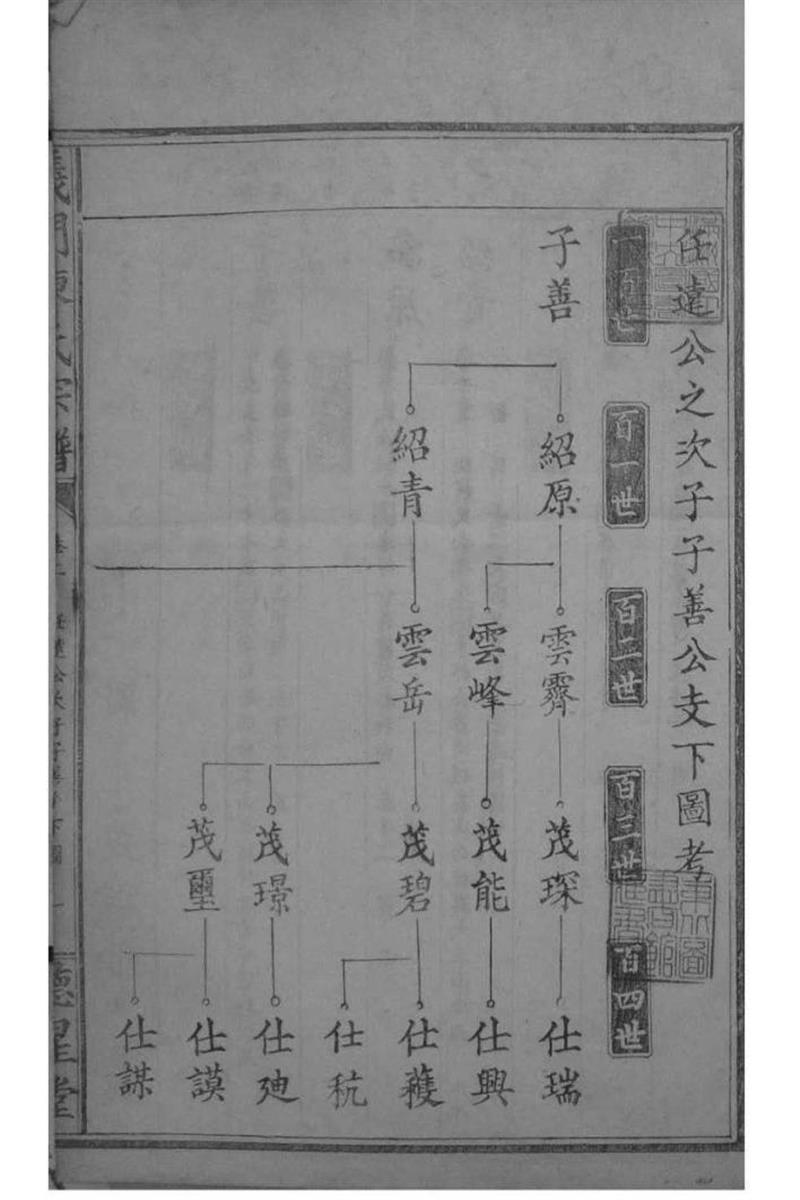 任達公之次子子善公支下圖考
一百世
百一世
百二世
百三世
百四世
子善
紹原
紹青
雲霽
雲峰
雲岳
茂琛
茂能
茂碧
茂璟
茂璽
仕瑞
仕興
仕穫
仕秔
仕廸
仕謨
仕謀
義門陳氏宗譜
任達公次子子善公支下圖
德星堂